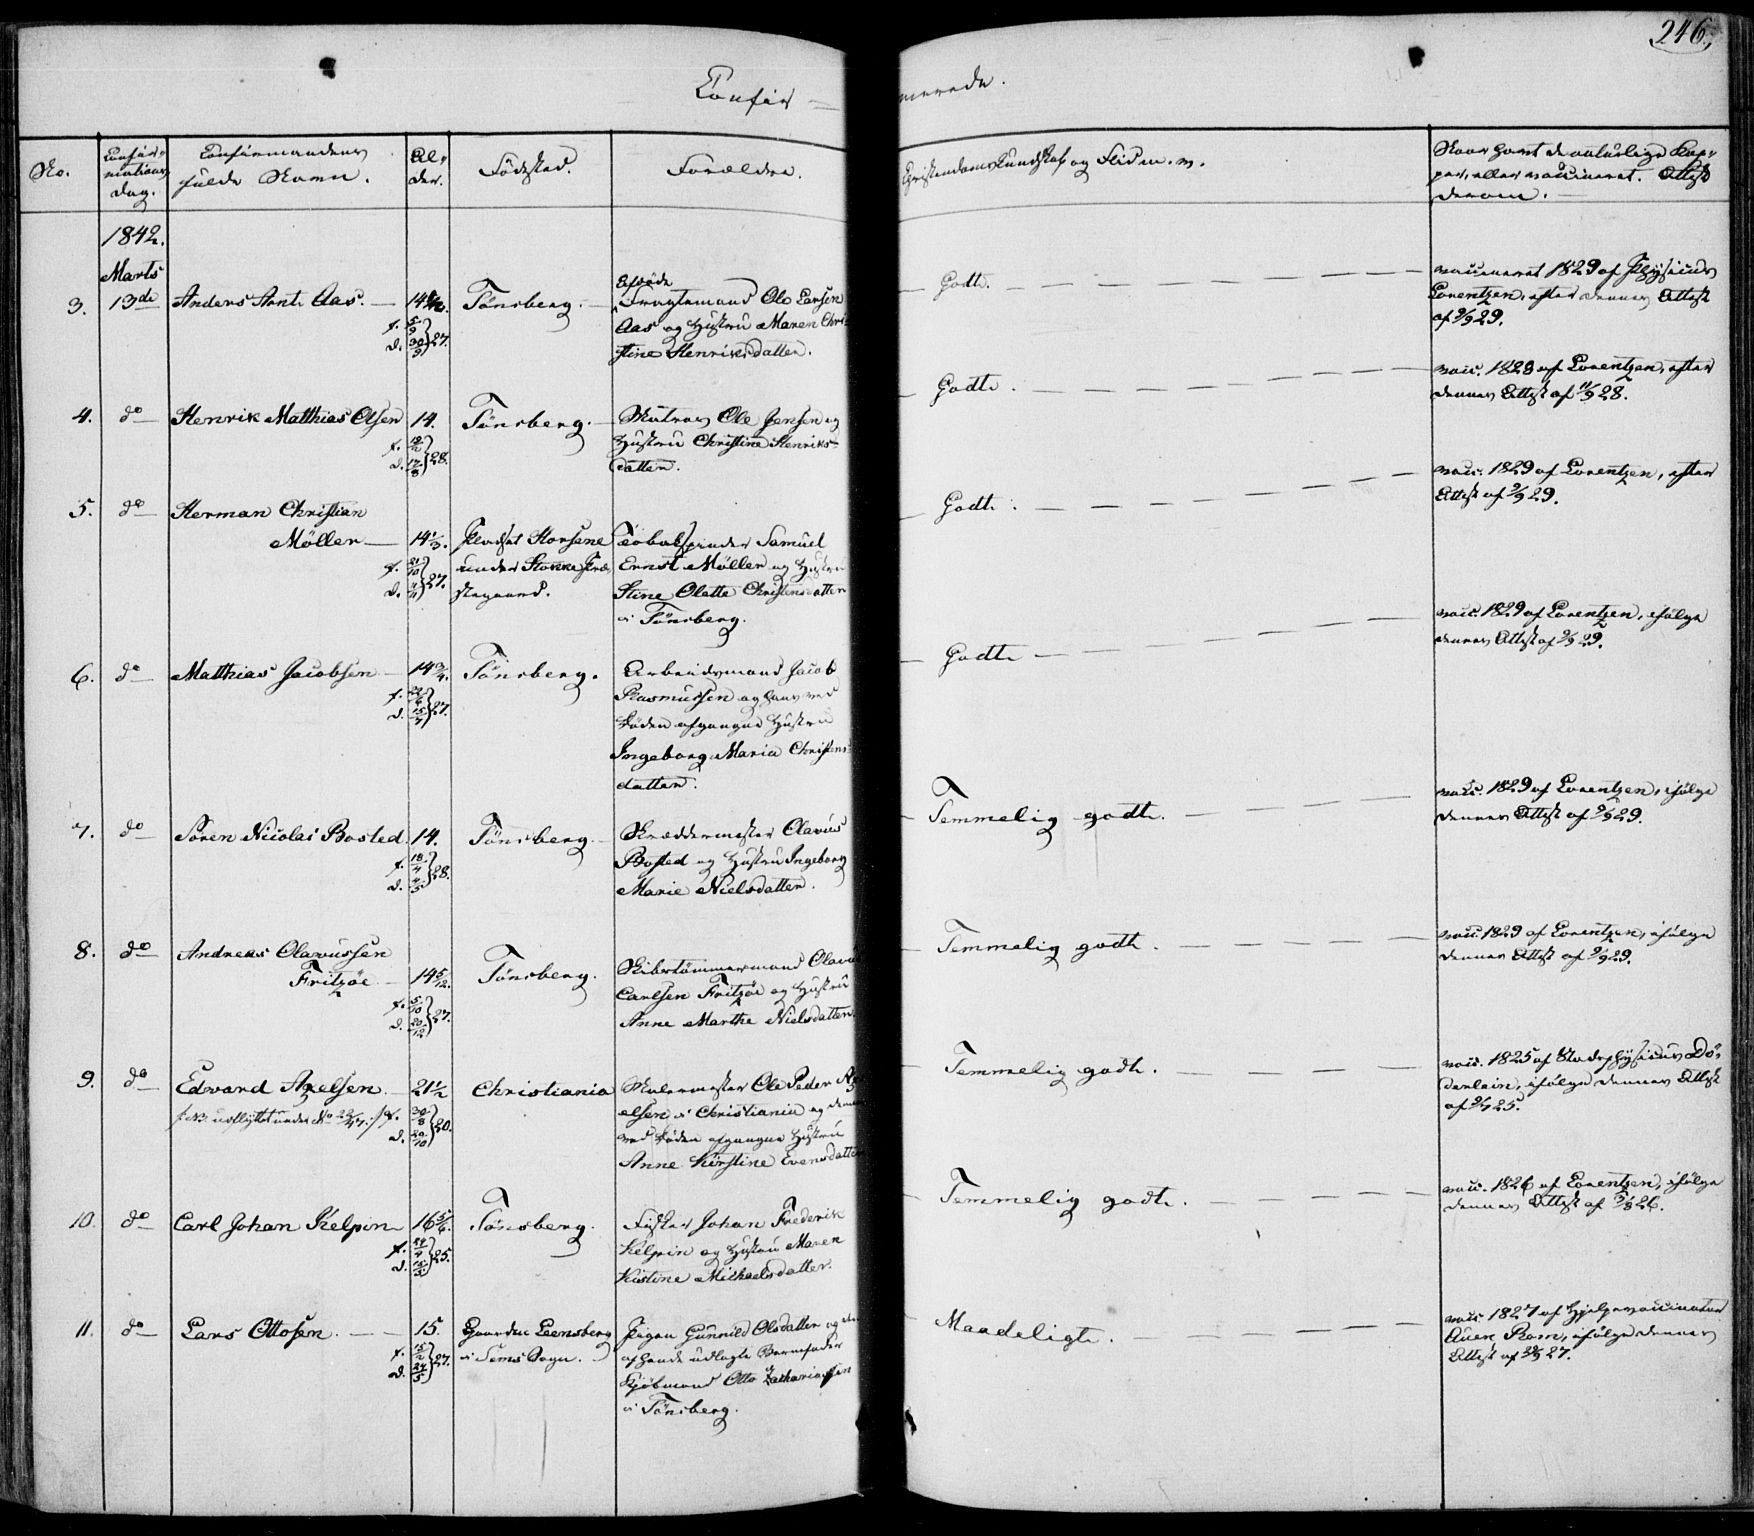 246.
Confir-
merede.
No.
Confir-
mations
dag.
Confirmandens
fulde Navn.
Al-
der.
Födsted.
Forældre.
Christendoms Kundskab og Flid m. v.
Naar havt de naturlige Kop-
per, eller vaccineret. Attest
derom.
1842.
Marts
3. 13de Anders Arnt Aas. — Tönsberg. —
f. 5/9 27.
d. 30/9
Afdöde
Fragtemand Ole Larsen
Aas og Hustru Maren Chri-
stine Henriksdatter.
Godt.
vaccineret 1829 af Physicus
Lorentzen, efter dennes Attest
af 29.
4. do Henrik Matthias Olsen 14. Tönsberg. —
f. 28.
d. 17/8
Ole Jensen og
Hustru Christine Henriks-
datter.
Godt.
vacc. 1828 af Lorentzen, efter
dennes Attest af 11/9 28.
5. do Herman Christian
Möller — 14 1/3.
f. 21/10 27.
d. 4/11
Pladset Horsene
under Stokke Præ-
stegaard.
Tobakspinder Samuel
Ernst Möller og Hustru
Stine Olette Christensdatter
i Tönsberg.
Godt.
vacc. 1829 af Lorentzen, efter
Attest af 29.
6. do Matthias Jacobsen — 14 3/4. Tönsberg.
f. 27.
d.
Arbeidsmand Jacob
Rasmussen og hans ved
Döden afgangne Hustru
Ingeborg Maria Christens-
datter.
Godt —
vacc. 1829 af Lorentzen, ifölge
dennes Attest af 29.
7. do Sören Nicolai Bosted 14. Tönsberg. —
f. 18/4 28.
d. 4/5
Skræddermester Olavus
Bosted og Hustru Ingeborg
Marie Nielsdatter.
Temmelig godt. —
vacc. 1829 af Lorentzen, ifölge
dennes Attest af 29.
8. do Andreas Olavussen
Fritzöe — 14 5/12. Tönsberg.
f. 5/10 27.
d. 20/12
Skibstömmermand Olavus
Carlsen Fritzöe og Hustru
Anne Marthe Nielsdatter.
Temmelig godt. —
vacc. 1829 af Lorentzen, ifölge
dennes Attest af 29.
9. do Edvard Axelsen — 21 1/2 Christiania
f. 30/8 20.
d. 20/10
Malermester Ole Peder Ax-
elsen i Christiania og dennes
ved Döden afgangne Hustru
Anne Kirstine Evensdatter
Temmelig godt. —
vacc. 1825 af Stadsphysicus Dö-
derlein, ifölge dennes Attest
af 25.
10. do Carl Johan Kelpin — 16 5/6. Tönsberg.
f. 25.
d.
Fisker Johan Frederik
Kelpin og Hustru Maren
Kistine Michaelsdatter.
Temmelig godt. —
vacc. 1826 af Lorentzen, ifölge
dennes Attest af 26.
11. do Lars Ottosen. — 15.
f. 15/2 27.
d. 27/5
Gaarden Leensberg
i Sems Sogn.
Pigen Gunnild Olsdatter og den
af hende udlagte Barnefader
Kjöbmand Otto Zachariassen
i Tönsberg.
Maadeligt. —
vacc. 1827 af Hjelpevaccinateur
Auen Ram, ifölge dennes
Attest af 27.